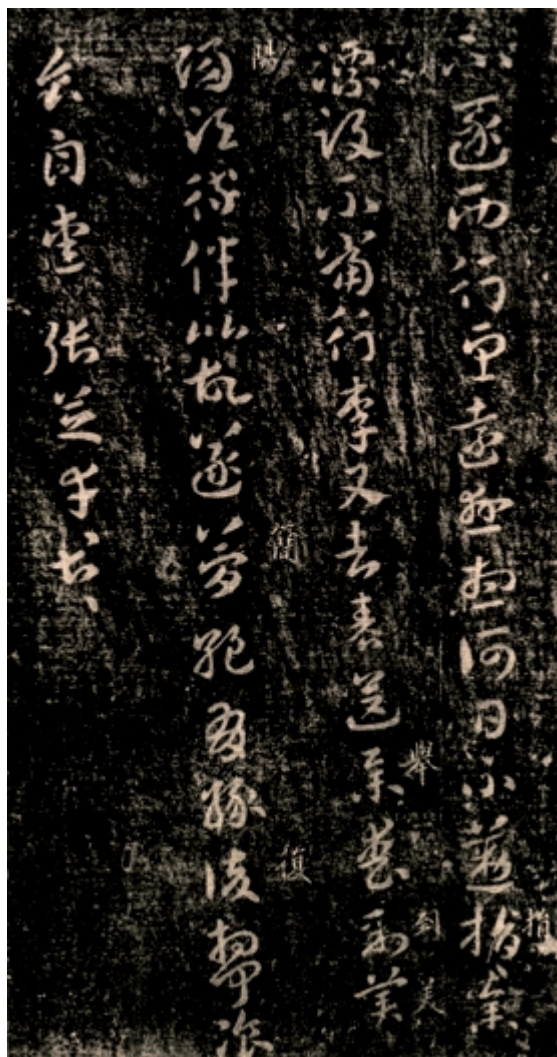 不遂西行望遠懸想何日不勤捐棄
捐
漂沒不當行李又去春送舉喪到美
舉 到 美
陽須待伴比故遂簡絕有緣復相聞飡
陽 簡 復
食自愛張芝幸甚